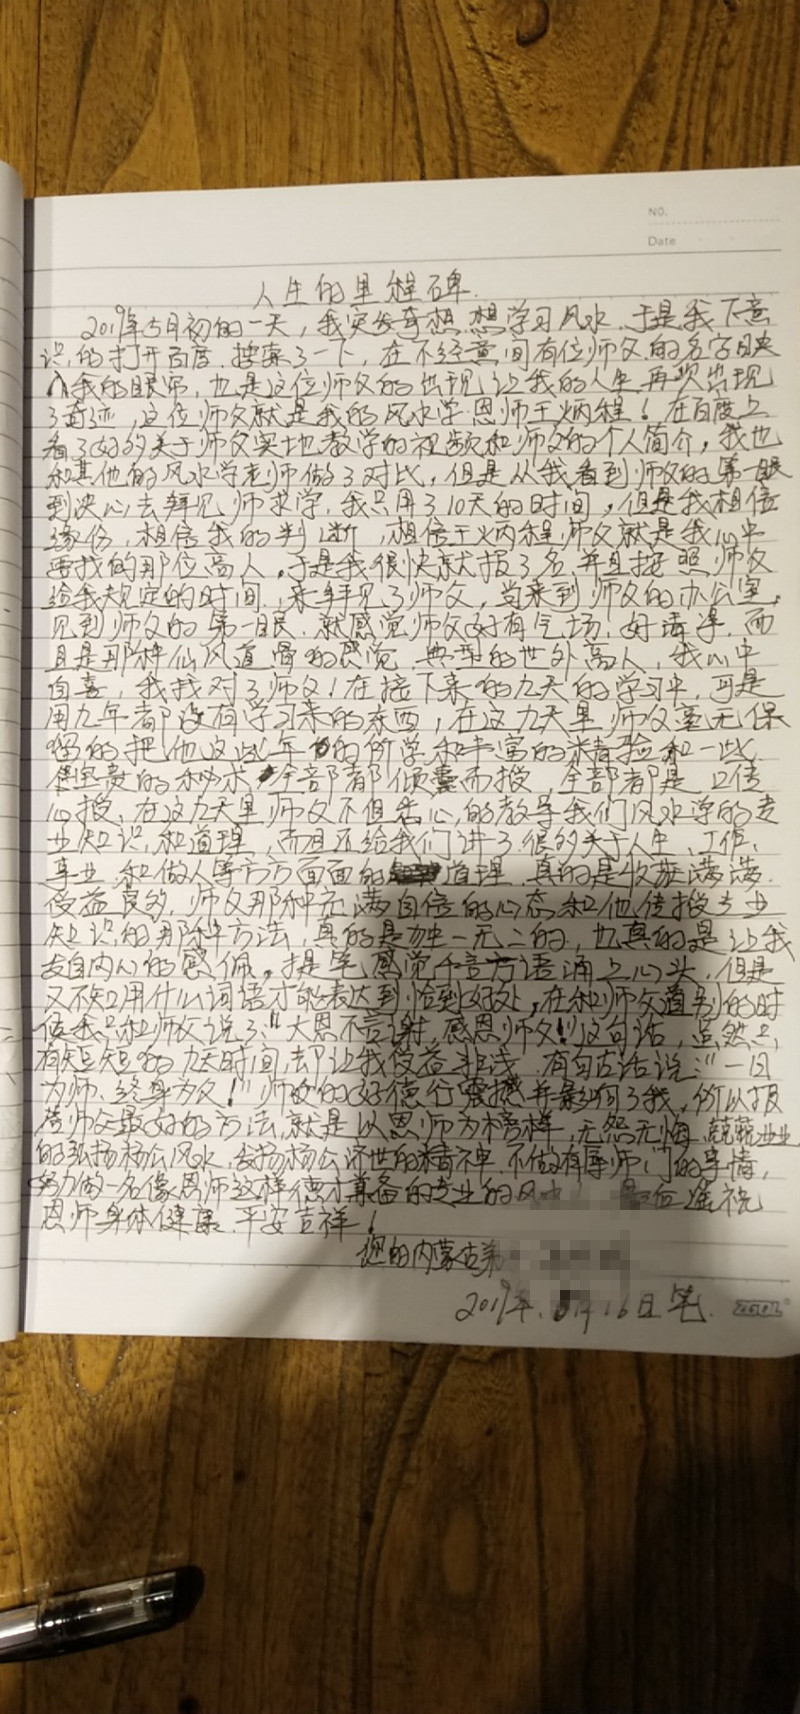 NO.
Date
人生的里程碑
2019年5月初的一天，我突发奇想想学习风水.于是我下意
识的打开百度.搜索了一下，在不经意间有位师父的名字映
入我的眼帘，也是这位师父的出现让我的人生再次出现
了奇迹，这位师父就是我的风水学恩师王炳程！在百度上
看了好的关于师父实地教学的视频和师父的个人简介，我也
和其他的风水学老师做了对比，但是从我看到师父的第一眼
到决心去拜见师求学，我只用了10天的时间，但是我相信
缘份，相信我的判断，相信王炳程师父就是我心中
要找的那位高人。于是我很快就报了名.并且按照师父
给我规定的时间.来拜见了师父，当来到师父的办公室，
见到师父的第一眼.就感觉师父好有气场！好清净.而
且是那种仙风道骨的感觉.典型的世外高人，我心中
自喜，我找对了师父！在接下来的九天的学习中，可是
用九年都没有学习来的东西，在这九天里师父毫无保
留的把他这些年的所学和丰富的经验和一些
宝贵的秘术全部都倾囊而授，全部都是口传
心授，在这九天里师父不但悉心的教导我们风水学的专
业知识和道理，而且还给我们讲了很的关于人生、工作、
事业.和做人等方方面面的道理.真的是收获满满.
受益良多，师父那种充满自信的心态和他传授专业
知识的那种方法，真的是独一无二的，也真的是让我
发自内心的感佩。提笔感觉千言万语涌上心头，但是
又不知用什么词语才能表达到恰到好处，在和师父道别的时
候我只和师父说了"大恩不言谢，感恩师父！"这句话，虽然只
有短短的九天时间，却让我受益匪浅.有句古话说："一日
为师、终身为父！"师父的好德行震撼并影响了我，所以报
答师父最好的方法，就是以恩师为榜样，无怨无悔、兢兢业业
的弘扬杨公风水，发扬杨公济世的精神.不做有辱师门的事情，
努力做一名像恩师这样德才兼备的专业的风水 遥祝
恩师身体健康.平安吉祥！
您的内蒙古弟
2019年. 月16日笔.